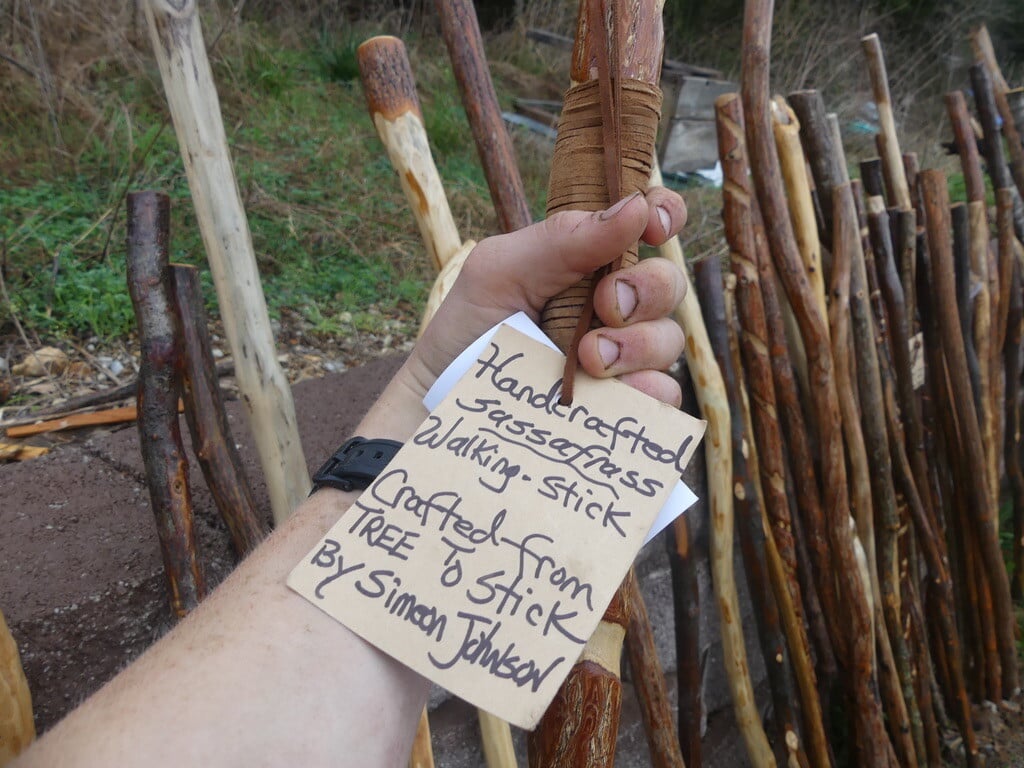 Handcrafted
sassafrass
Walking-stick
Crafted from
TREE To Stick
By Simeon Johnson